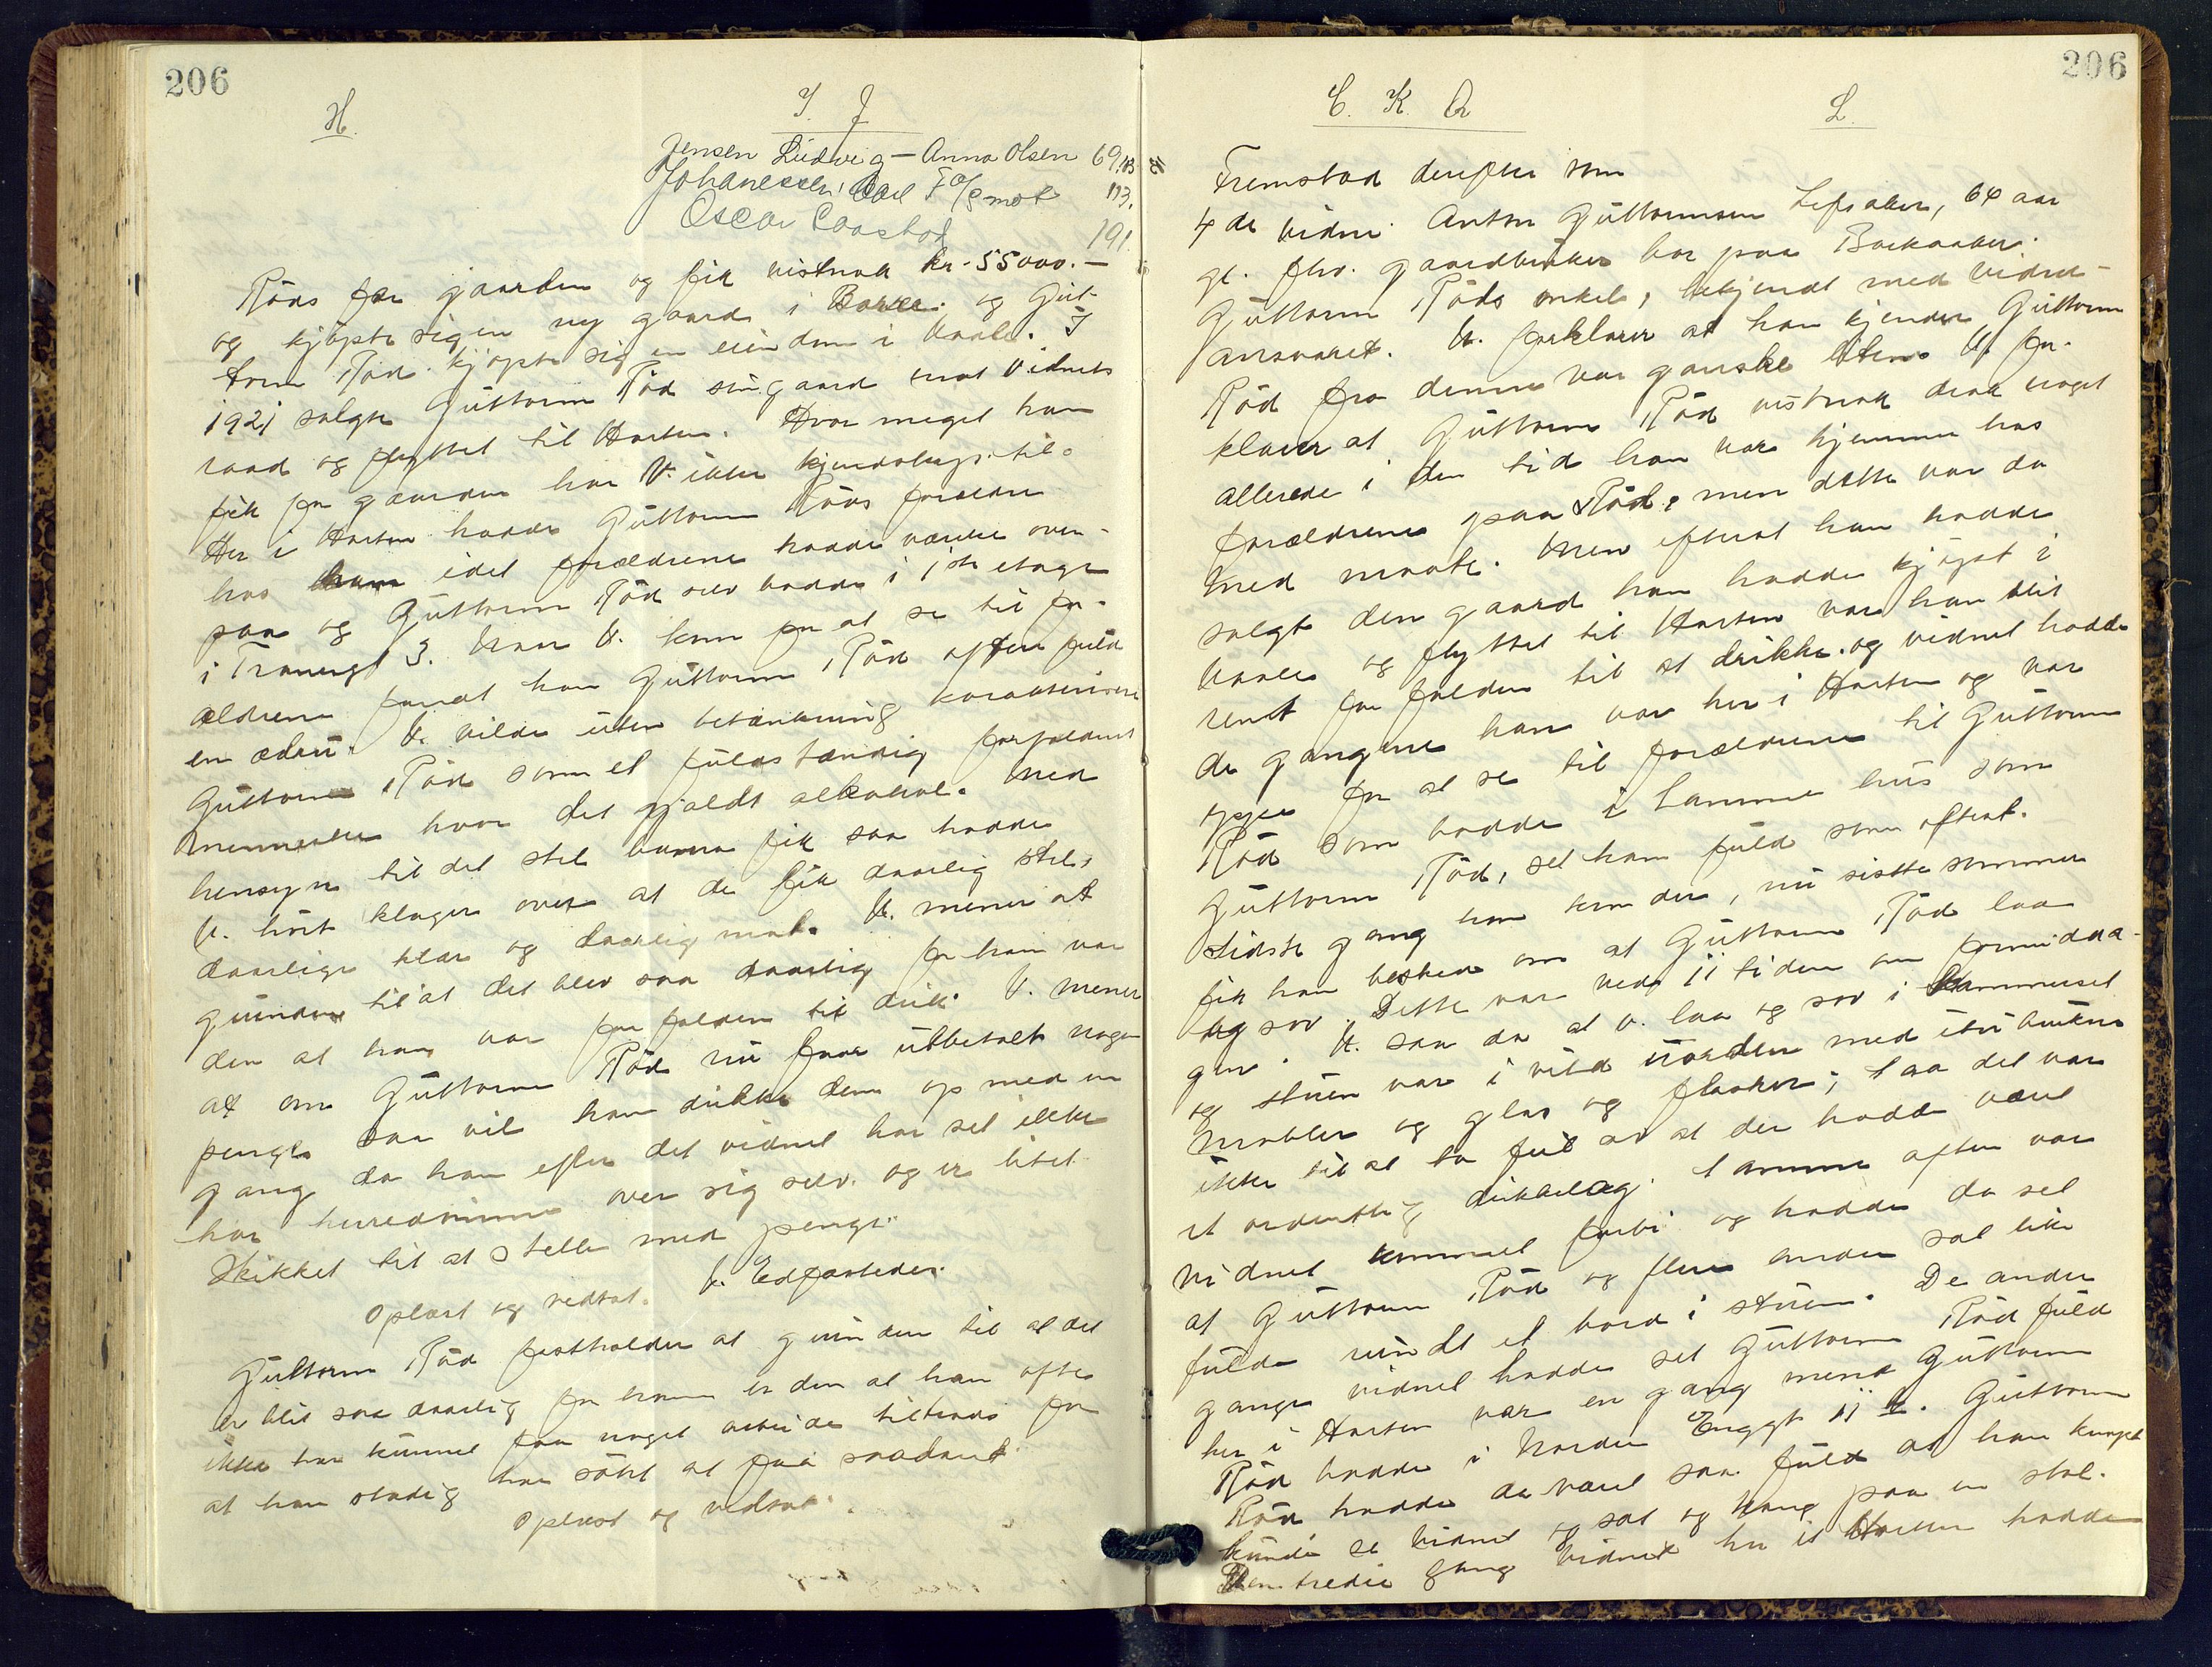 206
H.
I. J
Jensen Ludwig — Anna Olsen 69.
Johanesen, Carl F 113.
Oscar 191.
Röds far gaarden og fik vistnok kr. 55000.—
og kjöpte sig en ny gaard i Borre. og Gut-
torm Röd kjöpte sig en eiendom i Vaale. I
1921 solgte Guttorm Röd sin gaard mot Vidnets
raad og flyttet til Horten. Hvor meget han
fik for gaarden har V. ikke kjendskap til.
Her i Horten hadde Guttorm Röds foreldre
hos ham idet foreldrene hadde værelse oven-
paa og Guttorm Röd selv bodde i 1ste etage
i Tranengt 3. Naar V. kom for at se til for-
ældrene fandt han Guttorm Röd oftere fuld
en ædru. V. vilde uten betænkning karakterisere
Guttorm Röd som et fuldstændig forfaldent
menneske hvor det gjaldt alkohol. Med
hensyn til det stel barna fik saa hadde
V. hört klager over at de fik daarlig stel,
daarlige klær og daarlig mat. V. mener at
grunden til at det blev saa daarlig for ham var
den at han var forfalden til drik. V. mener
at om Guttorm Röd nu faar utbetalt nogen
penger saa vil han drikke dem op med en
gang da han efter det vidnet har set ikke
har herredömme over sig selv og er litet
skikket til at stelle med penge.
Oplæst og vedtat. V. Edfæstedes.
Guttorm Röd fastholder at grunden til at det
er blit saa daarlig for ham er den at han ofte
ikke har kunnet faa noget arbeide tiltrods for
at han stadig har sökt at faa saadant.
Oplæst og vedtat.
206
C. K. Q
L.
Fremstod derefter som
4de vidne. Anton Guttormsen Lefsaker, 64 aar
gl. fhv. gaardbruker bor paa Bakaaker.
Guttorm Röds onkel, bekjendt med vidne-
ansvaret. V. forklarer at han kjender Guttorm
Röd fra denne var ganske liten. V. for-
klarer at Guttorm Röd vistnok drak noget
allerede i den tid han var hjemme hos
forældrene paa Röd, men dette var da
med maate. Men efterat han hadde
solgt den gaard han hadde kjöpt i
Vaale og flyttet til Horten var han blit
rent forfalden til at drikke. og vidnet hadde
de gangene han var her i Horten og var
oppe for at se til forældrene til Guttorm
Röd som bodde i samme hus som
Guttorm Röd, set ham fuld som oftest.
Sidste gang han kom der, nu sistte sommer
fik han besked om at Guttorm Röd laa
og sov. Dette var ved 11 tiden om formidda-
gen. V. saa da at v. laa og sov i kammerset
og stuen var i vild uorden med itubrukne
möbler og glas og flasker, saa det var
ikke til at ta feil av at der hadde været
et ordentlig drikkelag. Samme aften var
vidnet kommet forbi og hadde da set
at Guttorm Röd og flere andre sat like
fulde rundt et bord i stuen. De andre
gange vidnet hadde set Guttorm Röd fuld
her i Horten var en gang mens Guttorm
Röd bodde i Nordre Enggt 11 b. Guttorm
Röd hadde da været saa fuld at han knapt
kunde se vidnet og sat og hang paa en stol.
Den tredie gang vidnet her i Horten hadde